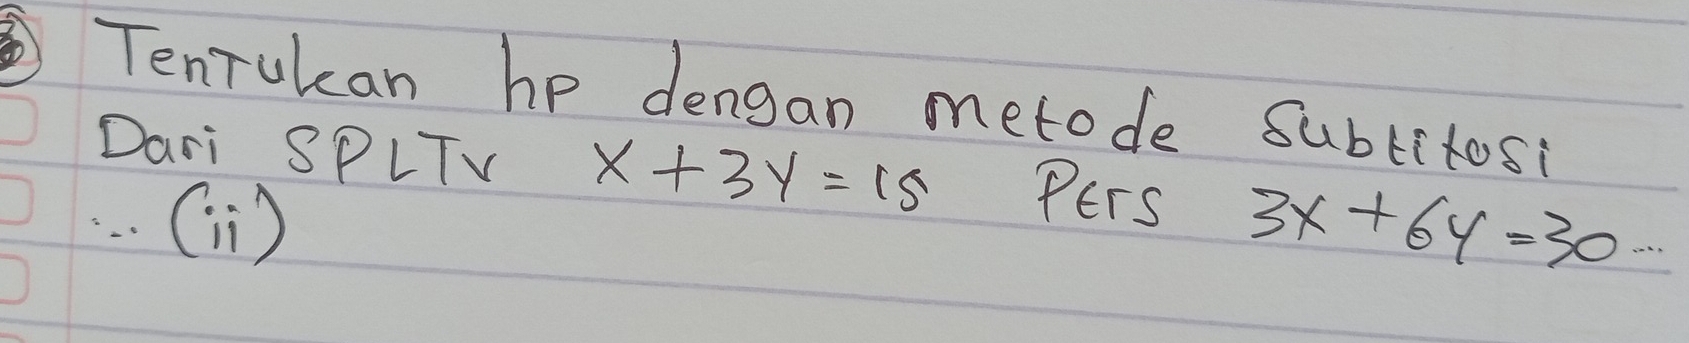 Tentukan hp dengan metode Subtitosi
Dari SPLTV X+3Y=15 Pers 3X+6Y=30...
... (ii)